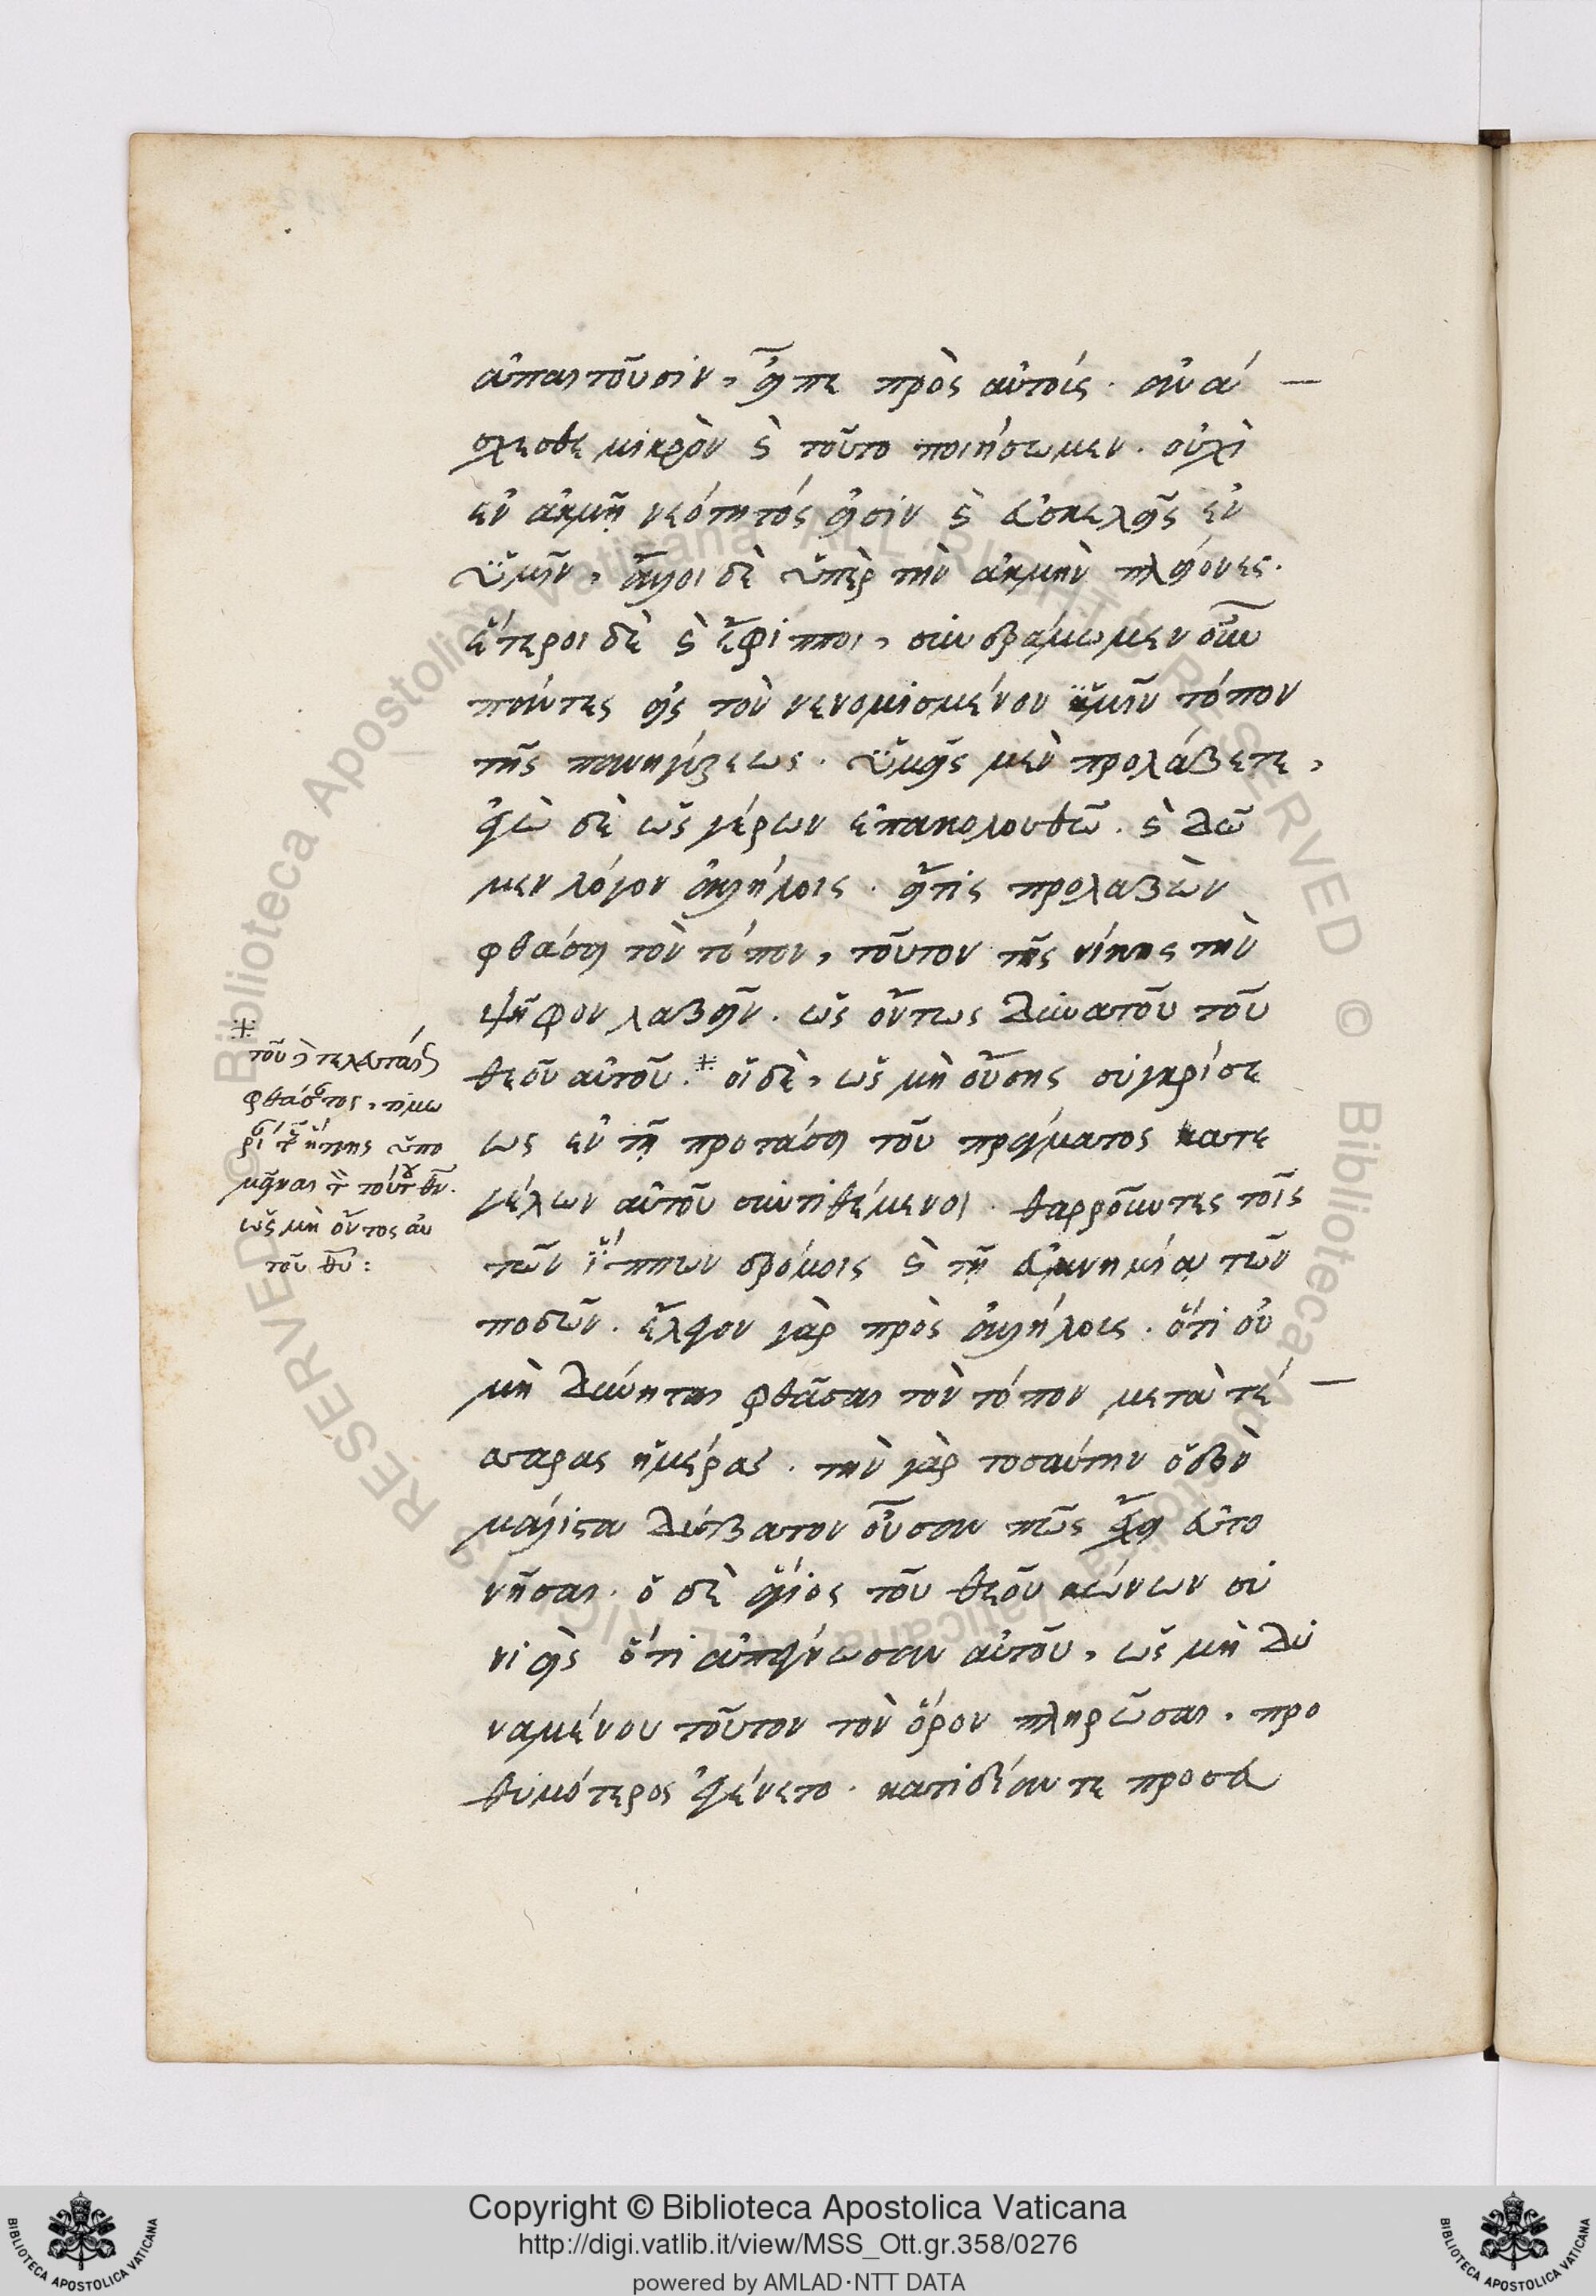 ἀπαιτοῦσιν, εἶπε πρὸς αὐτοίς. οὐν ἀ
σχεσθε μικρὸν ϛ τοῦτο ποιήσωμεν. οὐχὶ
ἐν ἀκμῇ νεότητός εἰσίν ϛ εὐσκελεῖς ἐν
ὑμῖν, ἄλλοι δὲ ὑπὲρ τὴν ἀκμὴν πλείονες.
ἕτεροι δὲ ϛ ἔφιπποι, συνδράμωμεν οὖν
πάντες εἰς τὸν νενομισμένον ὑμῖν τόπον
τῆς πανηγύρεως. ὑμεῖς μὲν προλάβετε,
ἐγὼ δὲ ὡς γέρων ἐπακολουθῶ. ϛ δῶ
μεν λόγον ἀλλήλοις. εἴ τις προλαβὼν
φθάσει τὸν τόπον, τοῦτον τῆς νίκης τὴν
ψῆφον λαβεῖν. ὡς ὄντως δυνατοῦ τοῦ
θεοῦ αὐτοῦ. οἱ δὲ, ὡς μὴ οὔσης συγκρίσε
ως ἐν τῇ προτάσει τοῦ πράγματος κατε
γέλων αὐτοῦ συντιθέμενοι. θαρροῦντες τοῖς
τῶν ἵππων δρόμοις ϛ τῇ εὐκνημίᾳ τῶν
ποδῶν. ἔλεγον γὰρ πρὸς ἀλλήλοις. ὅτι οὐ
μὴ δυνήται φθᾶσαι τὸν τόπον μετὰ τέ
σσαρας ἡμέρας. τὴν γὰρ τοσαύτην ὁδὸν
μάλιστα δύσβατον οὖσαν πῶς ἔχει εὐτο
νῆσαι. ὁ δὲ ἅγιος τοῦ θεοῦ κώνων συ
νιεὶς ὅτι ἀπέγνωσαν αὐτοῦ, ὡς μὴ δυ
ναμένου τοῦτον τὸν ὅρον πληρῶσαι, προ
θυμότερος ἐγένετο. κατιδίαν τε προσευ
τοῦ δὲ τελευταίου
φθάσαντος, τιμω
ὑπο
μεῖναι
ὡς μὴ ὄντος αὐ
τοῦ θῦ:
Copyright © Biblioteca Apostolica Vaticana
http://digi.vatlib.it/view/MSS_Ott.gr.358/0276
powered by AMLAD·NTT DATA